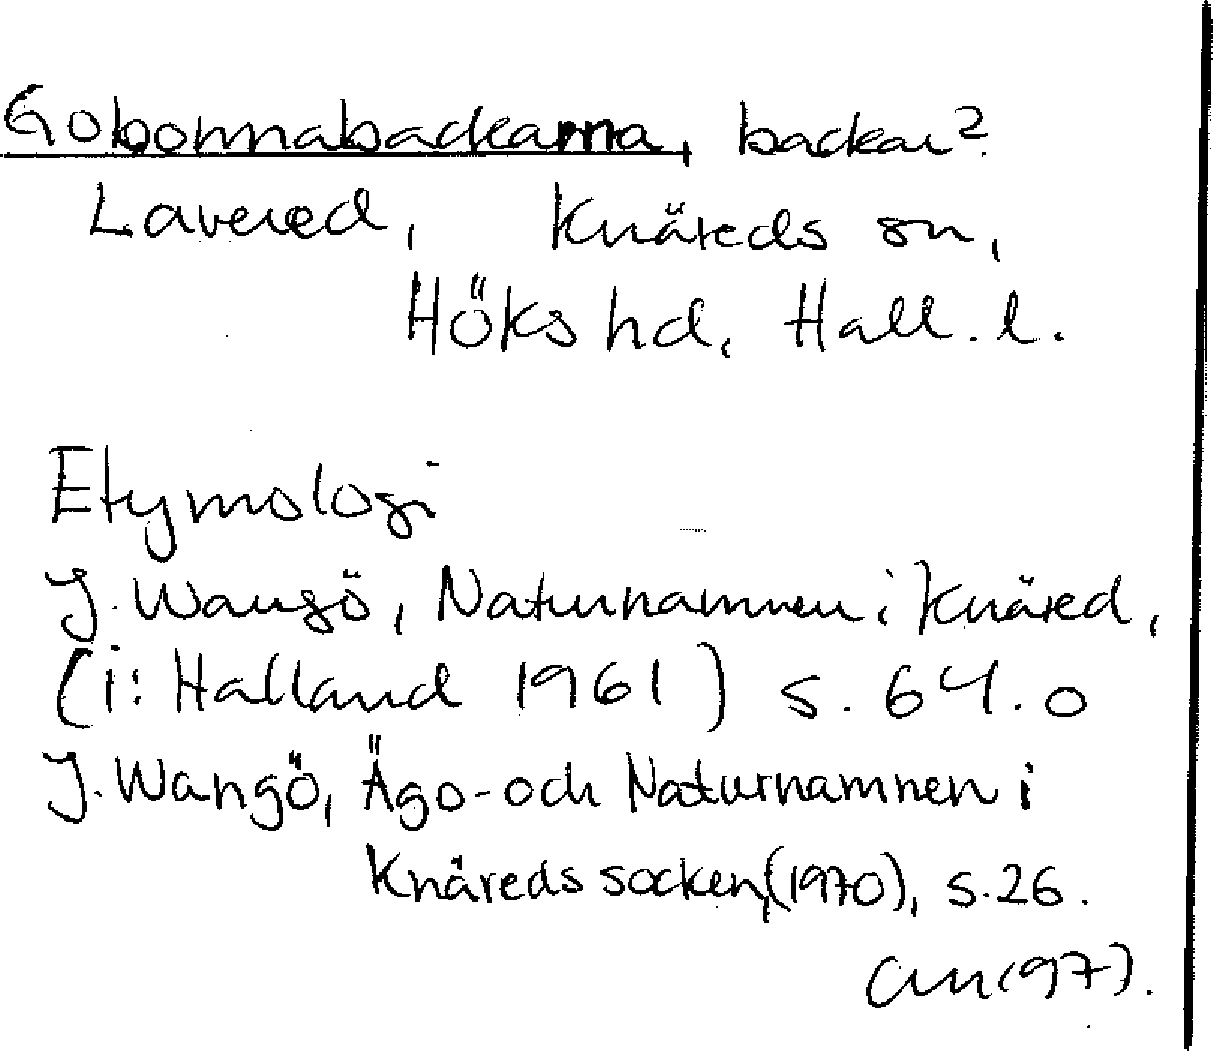 Gobonnabackarna, backar?
Lavered, Knäreds sn,
Höks hd, Hall. l.
Etymologi
J. Wangö, Naturnamnen i Knäred,
(i: Halland 1961) s. 64. o
J. Wangö, Ägo- och Naturnamnen i
Knäreds socken, (1970), s. 26.
(97).